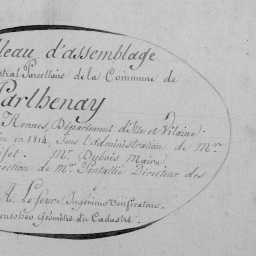 leau d'assemblage
Parcellaire de la Commune de
Parthenay
Rennes, Département d'Ille et Vilaine.
en 1814, Sous l'administration de Mr.
fet. Mr. Dubois Maire
rection de Mr. Directeur des
A. Lesueur Ingénieur Vérificateur
Géomètre du Cadastre.